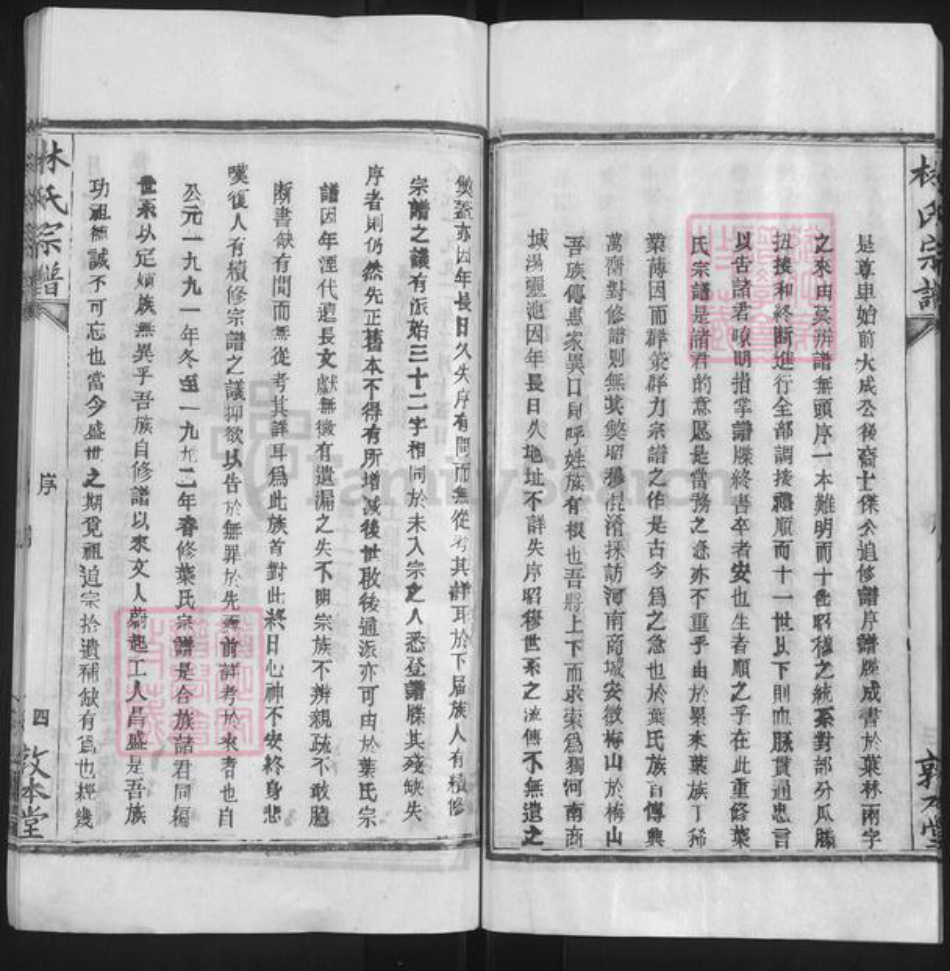 林氏宗譜
是尊卑始前大成公後裔士傑公追修譜序譜牒成書於葉林兩字
之來由莫辨譜無頭序一本難明而十世昭穆之統系對部分瓜滕
扭接和終斷進行全部調接禮順而十一世以下則血脈貫通忠言
以告諸君瞭明指掌譜牒終書卒者安也生者順之乎在此重修葉
氏宗譜是諸君的意愿是當務之急亦不重乎由於累來葉族丁稀
業薄因而群策群力宗譜之作是古今為之急也於葉氏族百傳興
萬膺對修譜則無其獎昭穆混淆採訪河南商城安徽梅山於梅山
吾族傳惠家異口同呼姓族有根也吾將上下而求索為獨河南商
城湯𤅬池因年長日久地址不詳失序昭穆世系之流傳不無遺之
敦本堂
獎蓋亦因年長日久失序有問而無從考其詳耳於下届族人有續修
宗譜之議有派始三十二字相同於未入宗之人悉登譜牒其殘缺失
序者則仍然先正舊本不得有所增减後世啟後通派亦可由於葉氏宗
譜因年湮代遠長文獻無徵有遺漏之失不明宗族不辨親疏不敢臆
斷書缺有間而無從考其詳耳為此族首對此終日心神不安終身悲
嘆復人有續修宗譜之議抑欲以告於無罪於先 前詳考於來者也自
公元一九九一年冬至一九九二年春修葉氏宗譜是合族諸君同編
世系以定 族無異乎吾族自修譜以來文人蔚起工人昌盛是吾族
功祖德誠不可忘也當今盛世之期覓祖追宗拾遺補缺有為也經幾
林氏宗譜
序
四
敦本堂
FamilySearch